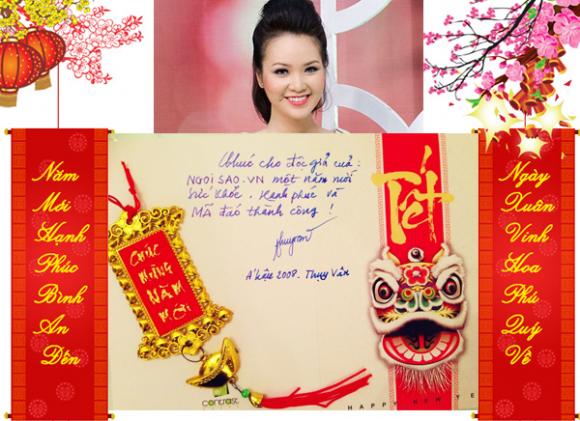 Năm
Mới
Hạnh
Phúc
Bình
An
Đến
Chúc cho độc giả của:
NGOI SAO.VN một năm mới
Sức khỏe. Hạnh phúc và
Mã đáo thành công!
Á hậu 2008. Thụy Vân
CHÚC
MỪNG
NĂM
MỚI
Tết
contrast
HAPPY NEW YE
Ngày
Xuân
Vinh
Hoa
Phú
Quý
Về